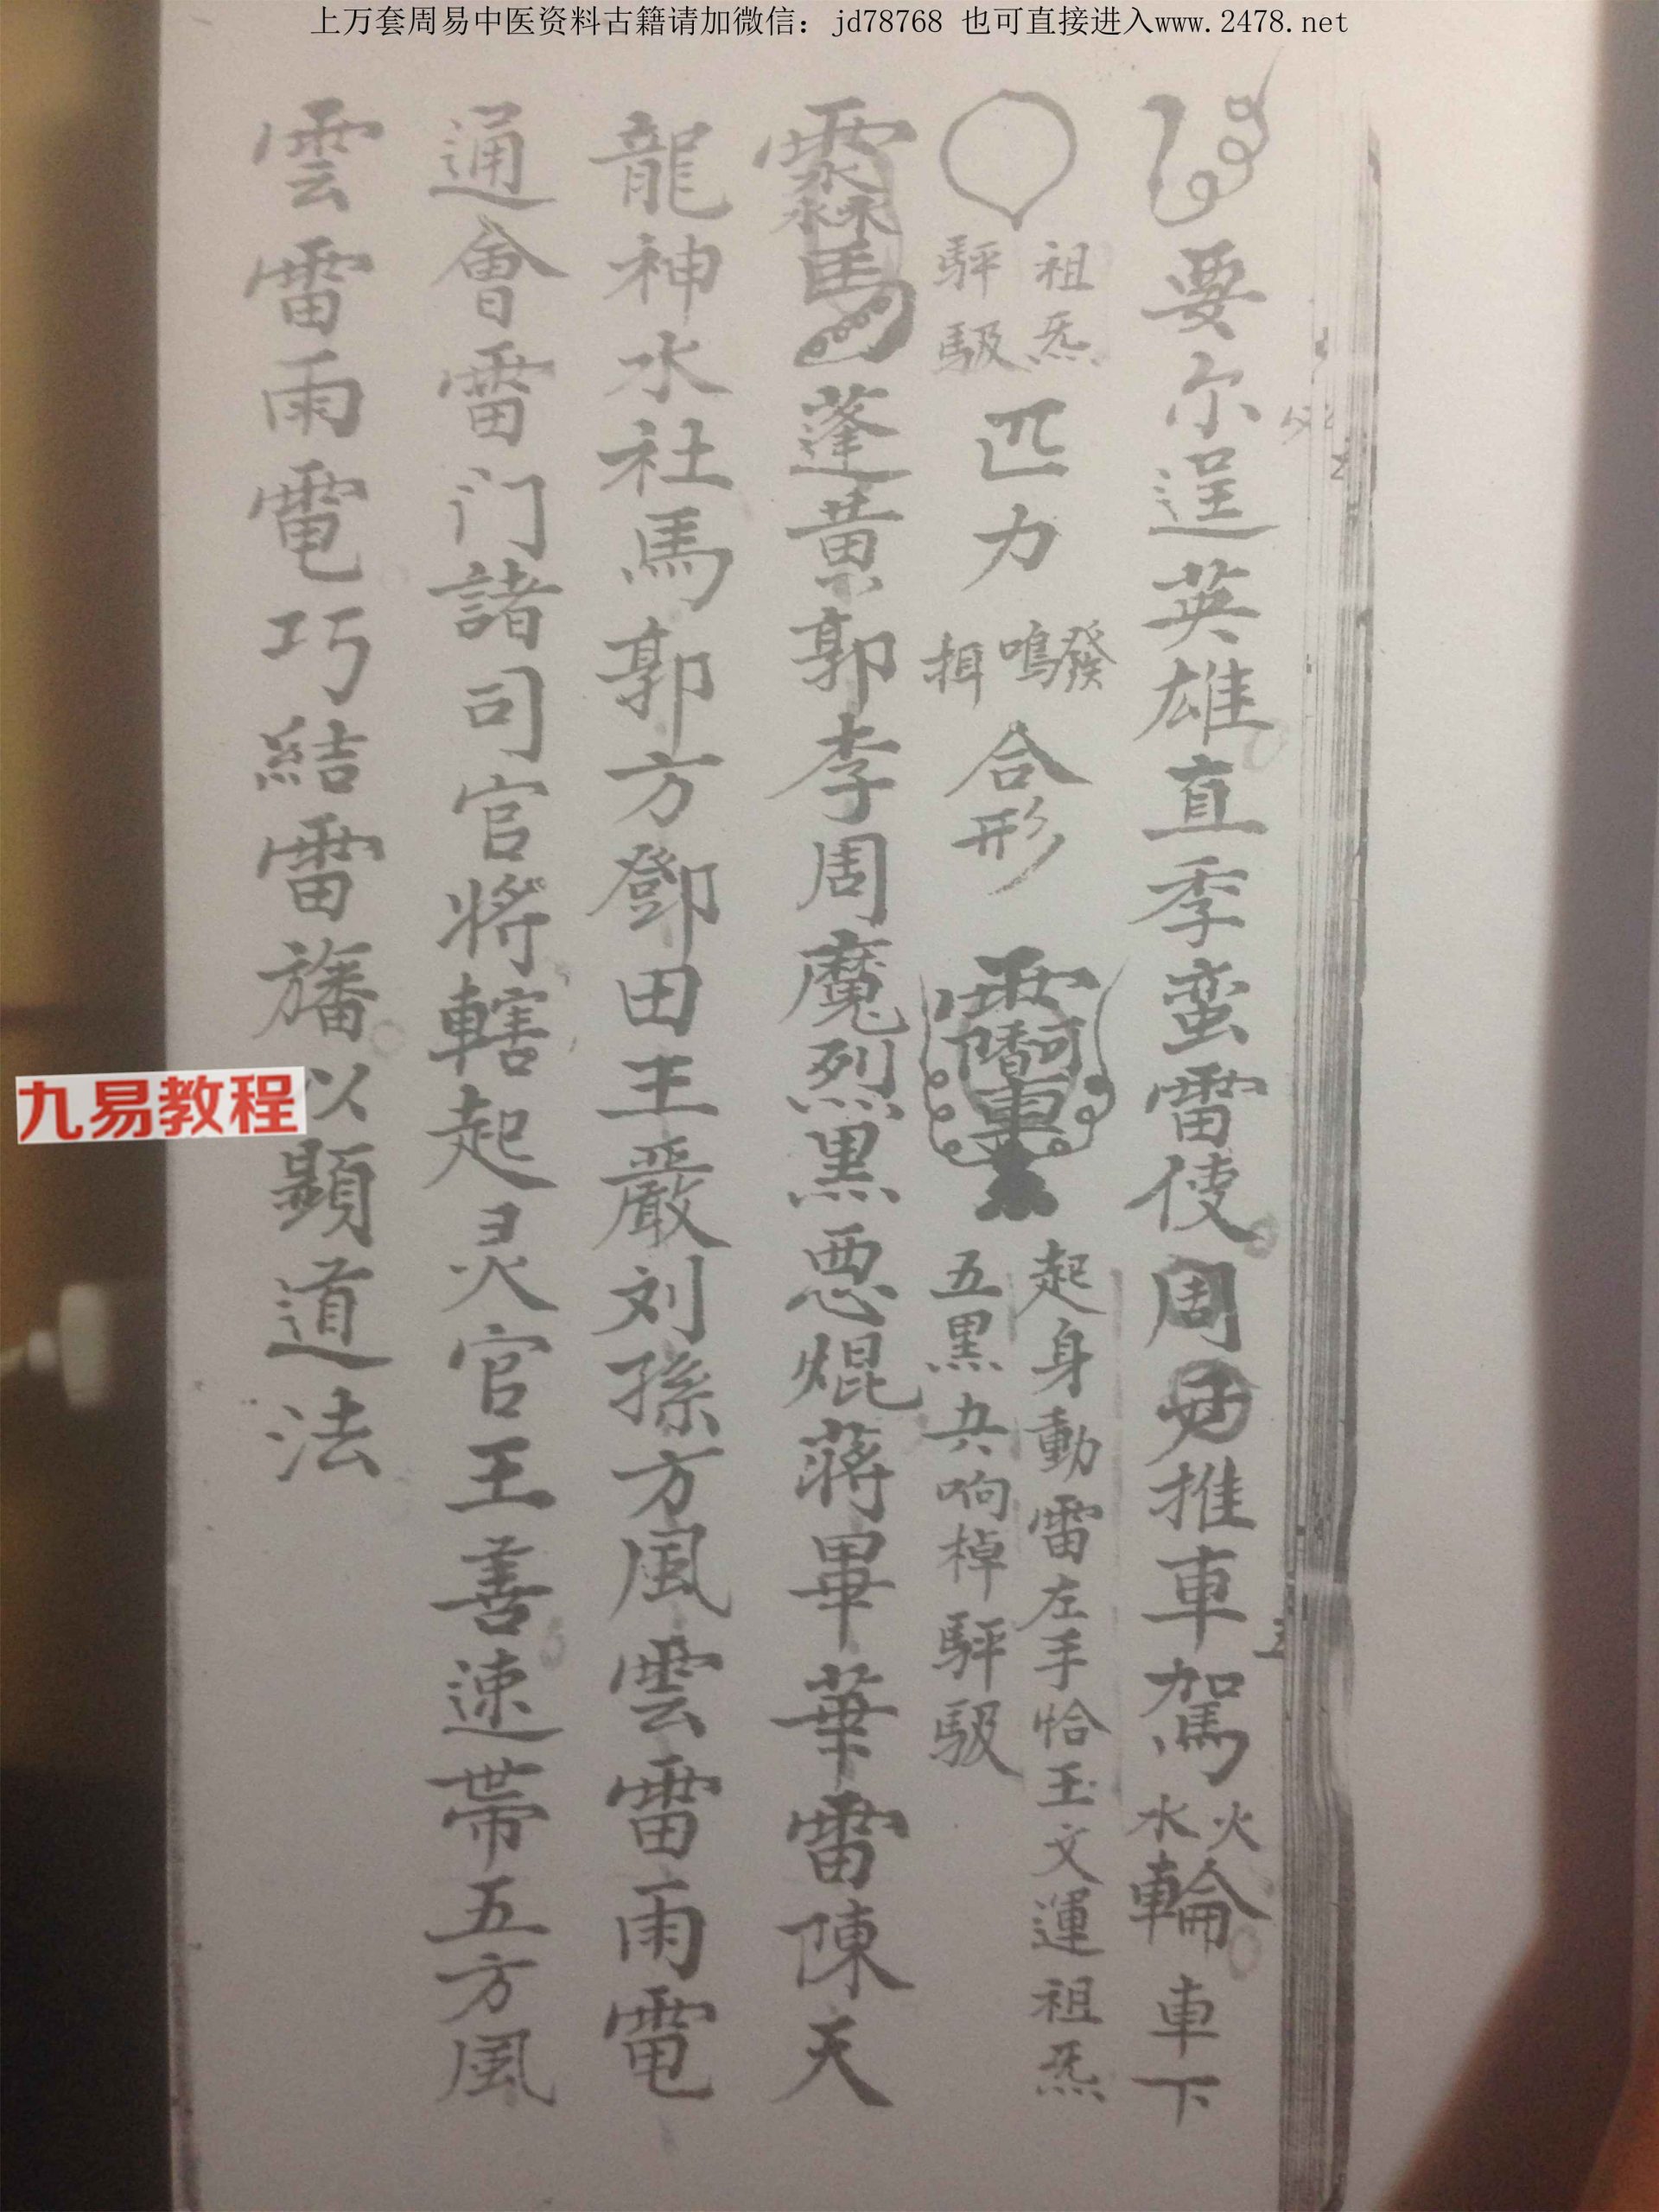 上万套周易中医资料古籍请加微信：jd78768 也可直接进入www.2478.net
要尔逞英雄直季蛮雷使周推車駕火水輪車下
祖炁
駍馺
匹力
發鳴
揖
合形
起身動雷左手恰玉文運祖炁
五黑共响棹駍馺
蓬黄郭李周魔烈黒悪焜蒋畢華雷陳天
龍神水社馬郭方鄧田王嚴刘孫方風雲雷雨電
通會雷门諸司官將轄起灵官王善速帶五方風
雲雷雨電巧結雷旛以顕道法
九易教程